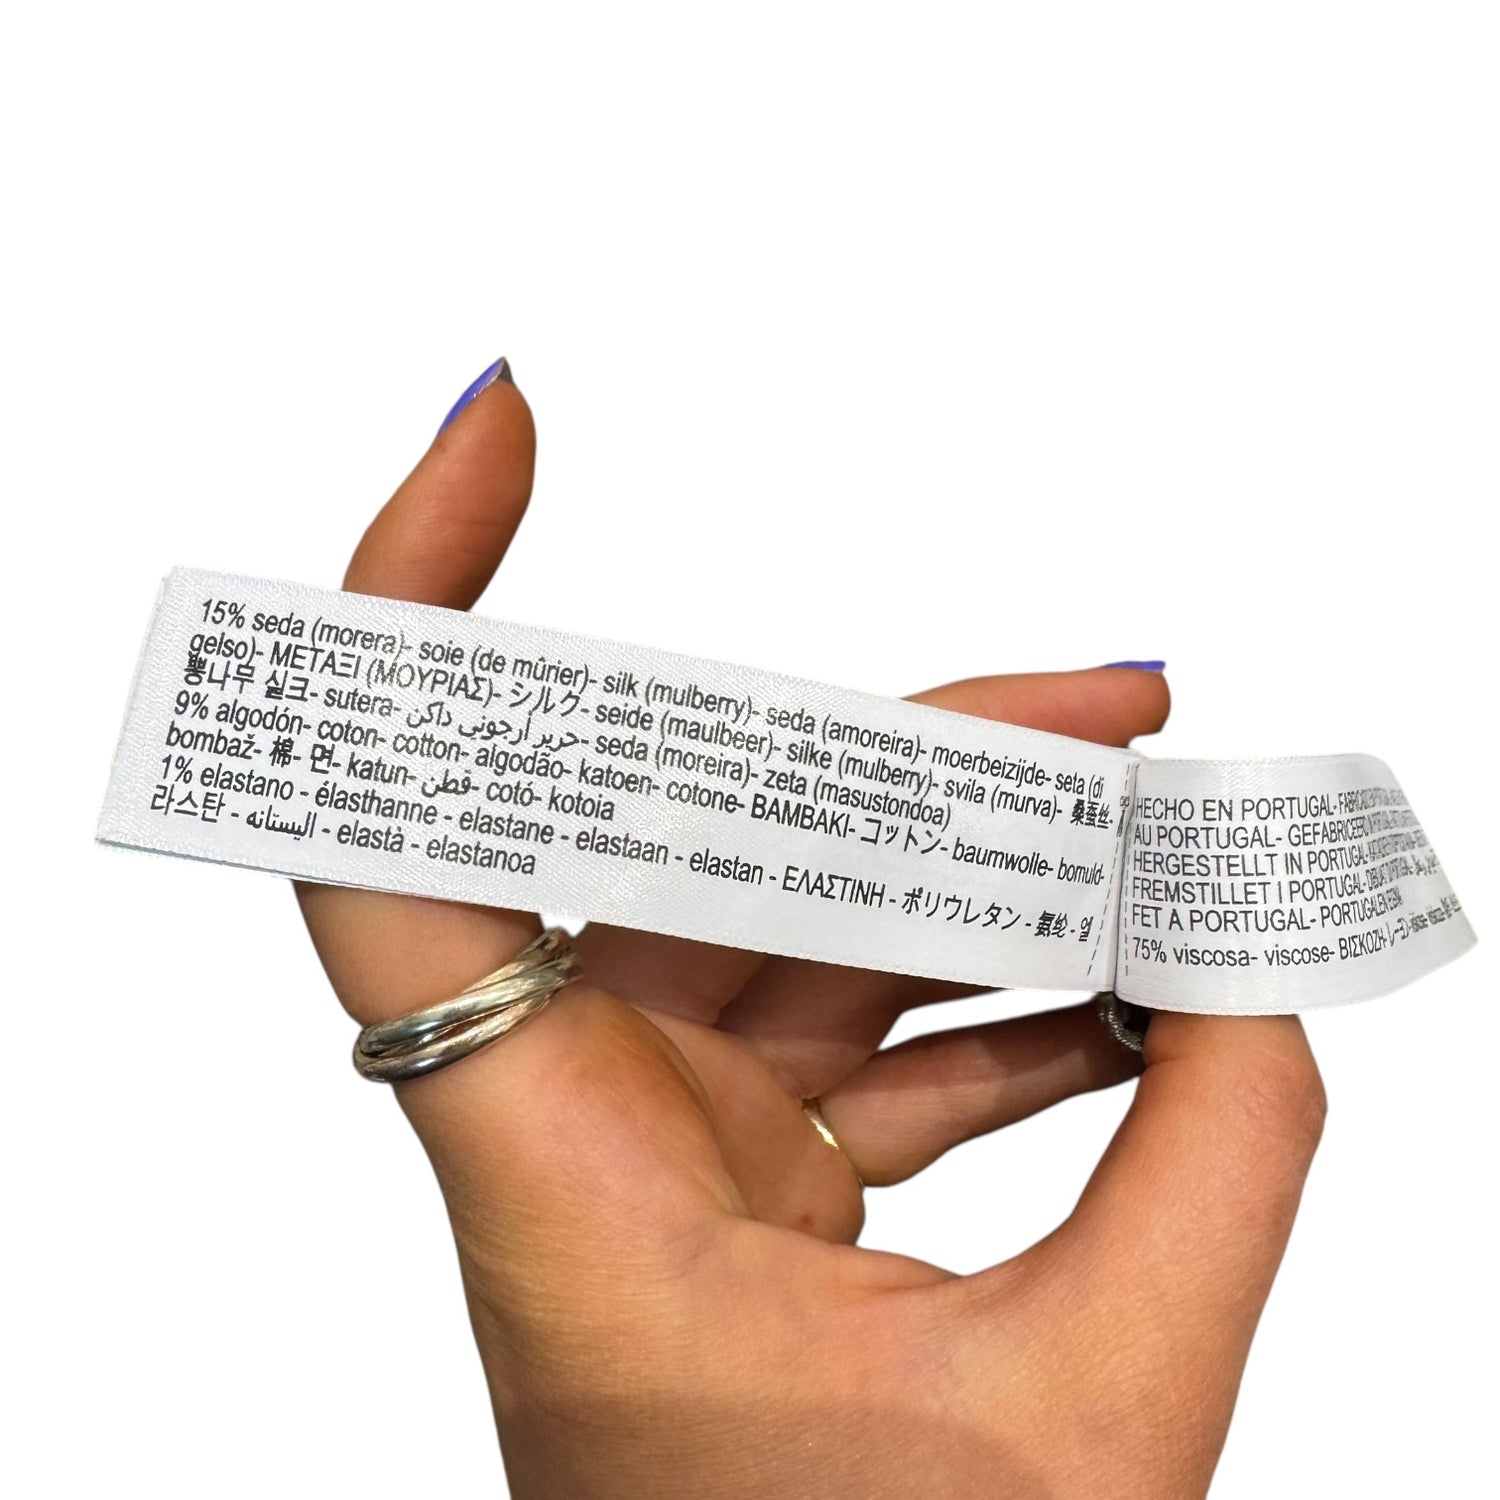 15% seda (morera)- soie (de mûrier)- silk (mulberry)- seda (amoreira)- moerbeizijde- seta (di
gelso)- ΜΕΤΑΞΙ (ΜΟΥΡΙΑΣ)- シルク- seide (maulbeer)- silke (mulberry)- svila (murva)- 桑蚕丝-
뽕나무 실크- sutera- حرير أرجوني داكن- seda (moreira)- zeta (masustondoa)
9% algodón- coton- cotton- algodão- katoen- cotone- BAMBAKI- コットン- baumwolle- bomuld-
bombaž- 棉- 면- katun- قطن- cotó- kotoia
1% elastano - élasthanne - elastane - elastaan - elastan - ΕΛΑΣΤΙΝΗ - ポリウレタン - 氨纶 - 엘
라스탄 - اليستانه - elastà - elastanoa
HECHO EN PORTUGAL-
AU PORTUGAL- GEFABRICEERD IN PORTUGAL-
HERGESTELLT IN PORTUGAL-
FREMSTILLET I PORTUGAL-
FET A PORTUGAL- PORTUGALEN EGINA
75% viscosa- viscose- ΒΙΣΚΟΖΗ- レーヨン-